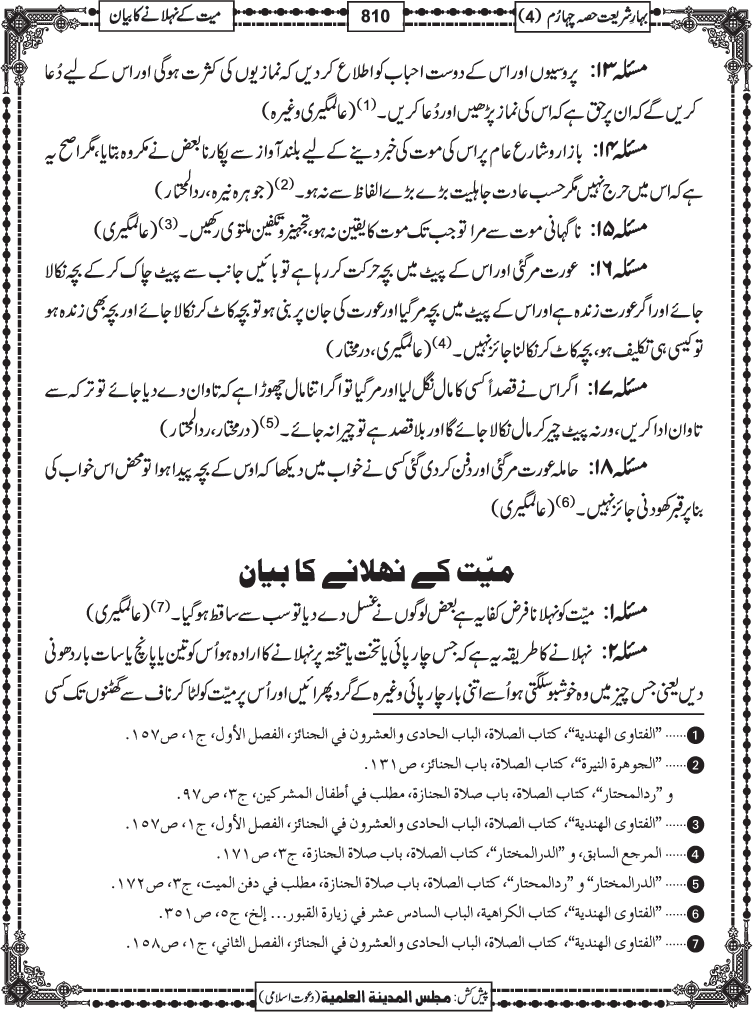 بہارِ شریعت حصہ چہارم (4)
810
میت کے نہلانے کا بیان
مسئلہ ۱۳: پروسیوں اور اس کے دوست احباب کو اطلاع کردیں کہ نمازیوں کی کثرت ہوگی اور اس کے لیے دُعا
کریں گے کہ ان پر حق ہے کہ اس کی نماز پڑھیں اور دُعا کریں۔ (1) (عالمگیری وغیرہ)
مسئلہ ۱۴: بازار و شارع عام پر اس کی موت کی خبر دینے کے لیے بلند آواز سے پکارنا بعض نے مکروہ بتایا، مگر اصح یہ
ہے کہ اس میں حرج نہیں مگر حسب عادت جاہلیت بڑے بڑے الفاظ سے نہ ہو۔ (2) (جوہرہ نیرہ، ردالمحتار)
مسئلہ ۱۵: ناگہانی موت سے مرا تو جب تک موت کا یقین نہ ہو، تجہیز و تکفین ملتوی رکھیں۔ (3) (عالمگیری)
مسئلہ ۱۶: عورت مرگئی اور اس کے پیٹ میں بچہ حرکت کر رہا ہے تو بائیں جانب سے پیٹ چاک کر کے بچہ نکالا
جائے اور اگر عورت زندہ ہے اور اس کے پیٹ میں بچہ مرگیا اور عورت کی جان پر بنی ہو تو بچہ کاٹ کر نکالا جائے اور بچہ بھی زندہ ہو
تو کیسی ہی تکلیف ہو، بچہ کاٹ کر نکالنا جائز نہیں۔ (4) (عالمگیری، درمختار)
مسئلہ ۱۷: اگر اس نے قصداً کسی کا مال نگل لیا اور مرگیا تو اگر اتنا مال چھوڑا ہے کہ تاوان دے دیا جائے تو ترکہ سے
تاوان ادا کریں، ورنہ پیٹ چیر کر مال نکالا جائے گا اور بلا قصد ہے تو چیرا نہ جائے۔ (5) (درمختار، ردالمحتار)
مسئلہ ۱۸: حاملہ عورت مرگئی اور دفن کردی گئی کسی نے خواب میں دیکھا کہ اوس کے بچہ پیدا ہوا تو محض اس خواب کی
بنا پر قبر کھودنی جائز نہیں۔ (6) (عالمگیری)
میّت کے نھلانے کا بیان
مسئلہ ۱: میّت کو نہلانا فرض کفایہ ہے بعض لوگوں نے غسل دے دیا تو سب سے ساقط ہوگیا۔ (7) (عالمگیری)
مسئلہ ۲: نہلانے کا طریقہ یہ ہے کہ جس چارپائی یا تخت یا تختہ پر نہلانے کا ارادہ ہو اُس کو تین یا پانچ یا سات بار دھونی
دیں یعنی جس چیز میں وہ خوشبو سلگتی ہو اُسے اتنی بار چارپائی وغیرہ کے گرد پھرائیں اور اُس پر میّت کو لٹا کر ناف سے گھٹنوں تک کسی
1 ...... "الفتاوى الهندية"، كتاب الصلاة، الباب الحادى والعشرون في الجنائز، الفصل الأول، ج١، ص١٥٧.
2 ...... "الجوهرة النيرة"، كتاب الصلاة، باب الجنائز، ص١٣١.
و "ردالمحتار"، كتاب الصلاة، باب صلاة الجنازة، مطلب في أطفال المشركين، ج٣، ص٩٧.
3 ...... "الفتاوى الهندية"، كتاب الصلاة، الباب الحادى والعشرون في الجنائز، الفصل الأول، ج١، ص١٥٧.
4 ...... المرجع السابق، و "الدرالمختار"، كتاب الصلاة، باب صلاة الجنازة، ج٣، ص١٧١.
5 ...... "الدرالمختار" و "ردالمحتار"، كتاب الصلاة، باب صلاة الجنازة، مطلب في دفن الميت، ج٣، ص١٧٢.
6 ...... "الفتاوى الهندية"، كتاب الكراهية، الباب السادس عشر في زيارة القبور... إلخ، ج٥، ص٣٥١.
7 ...... "الفتاوى الهندية"، كتاب الصلاة، الباب الحادى والعشرون في الجنائز، الفصل الثاني، ج١، ص١٥٨.
پیش کش: مجلس المدینة العلمیة (دعوت اسلامی)